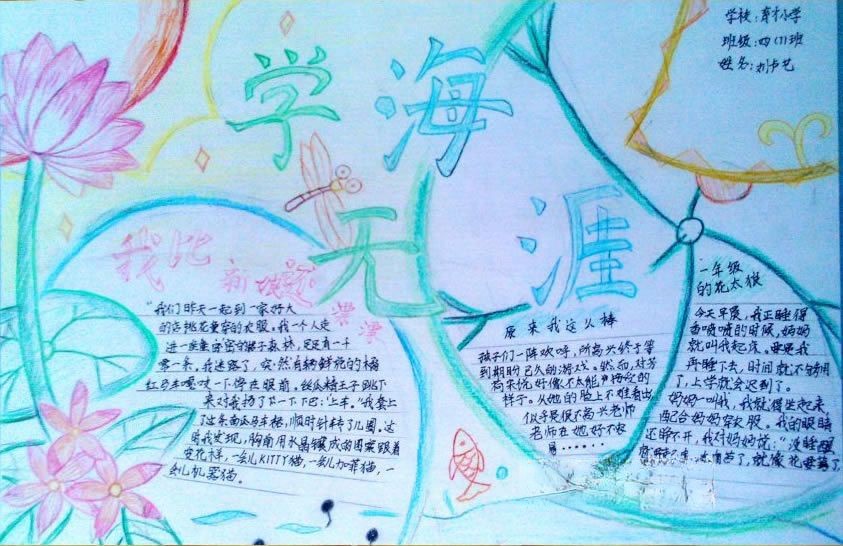 学校:育才小学
班级:四(1)班
姓名:刘书艺
学海
无涯
我比
新娘
漂漂
"我们昨天一起到一家好大
的店挑花童穿的衣服。我一个人走
进一座童穿密的裙子森林,足足有一千
零一条,我迷路了,突然有辆鲜艳的橘
红马车嘎吱一下停在眼前。丝瓜精王子跳下
来对我扬了一下下巴:"上车。"我套上
了这条南瓜马车裙,顺时针转了几圈。这
时我发现,胸前用水晶镶成的图案跟着
变花样,一会儿KITTY猫,一会儿加菲猫,一
会儿机器猫。
原来我这么棒
孩子们一阵欢呼,所高兴终于等
到期盼已久的游戏。然而,对芳
样子。从她的脸上不难看出
似乎是很不高兴老师
老师在她好不容
易······
一年级
的花太狼
今天早晨,我正睡得
香喷喷的时候,妈妈
就叫我起床。要是我
再睡下去,时间就不够用
了,上学就会迟到了。
妈妈一叫我,我就得坐起来,
配合妈妈穿衣服。我的眼睛
还睁不开,我对妈妈说:"没睡醒